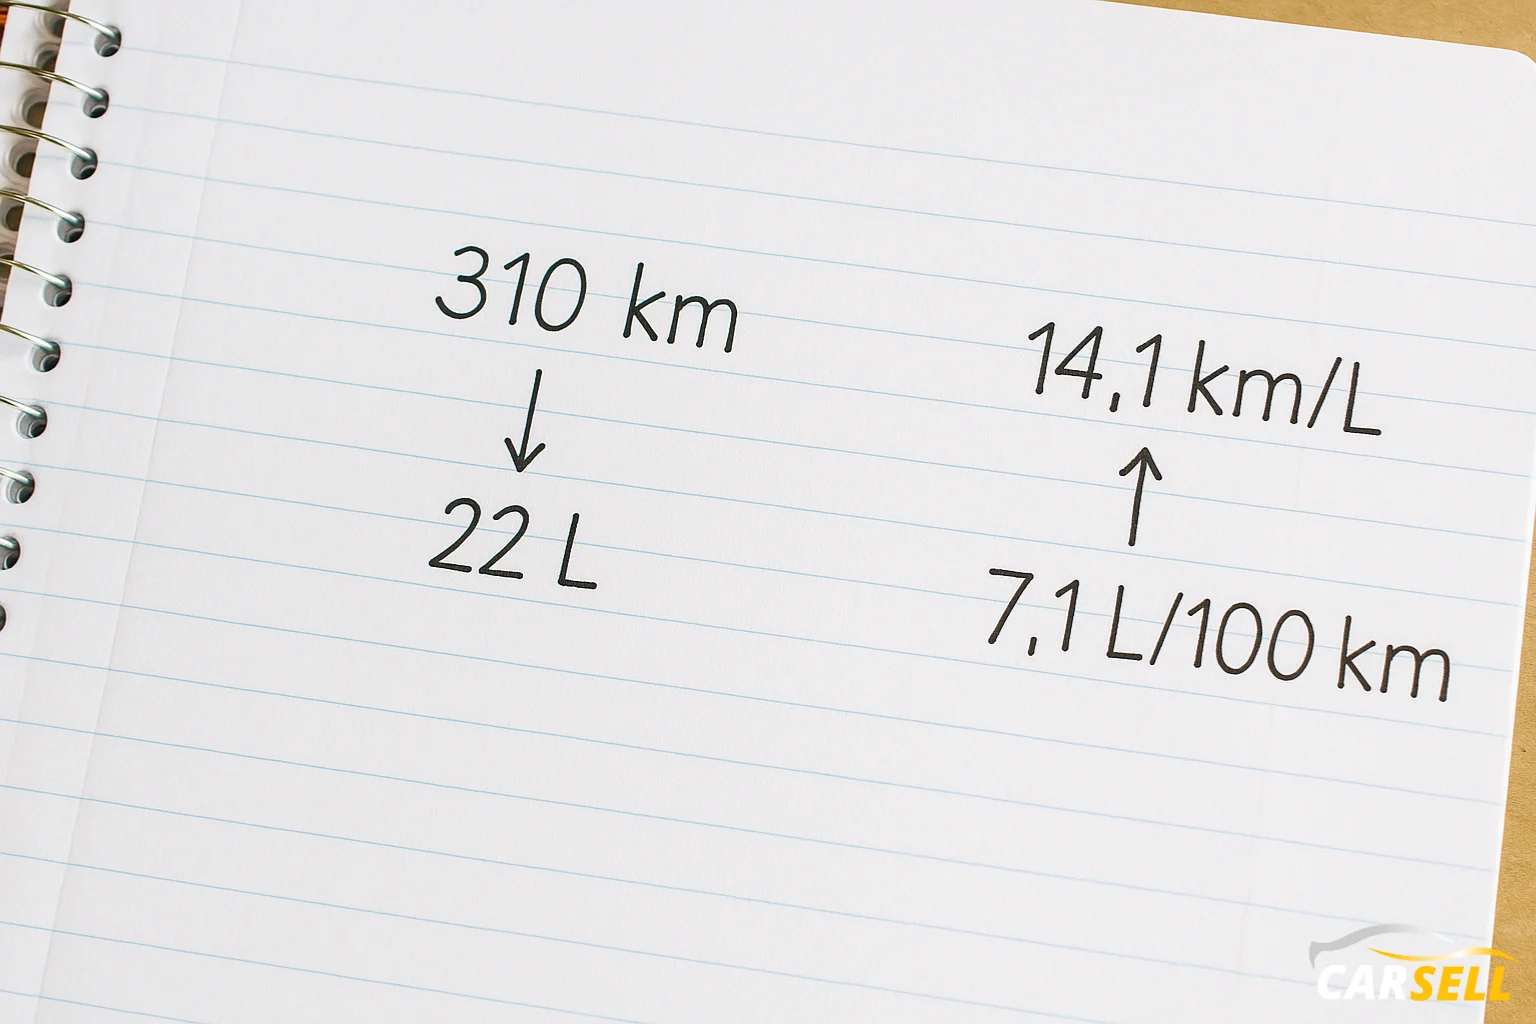 310 km
22 L
14,1 km/L
7,1 L/100 km
CARSELL